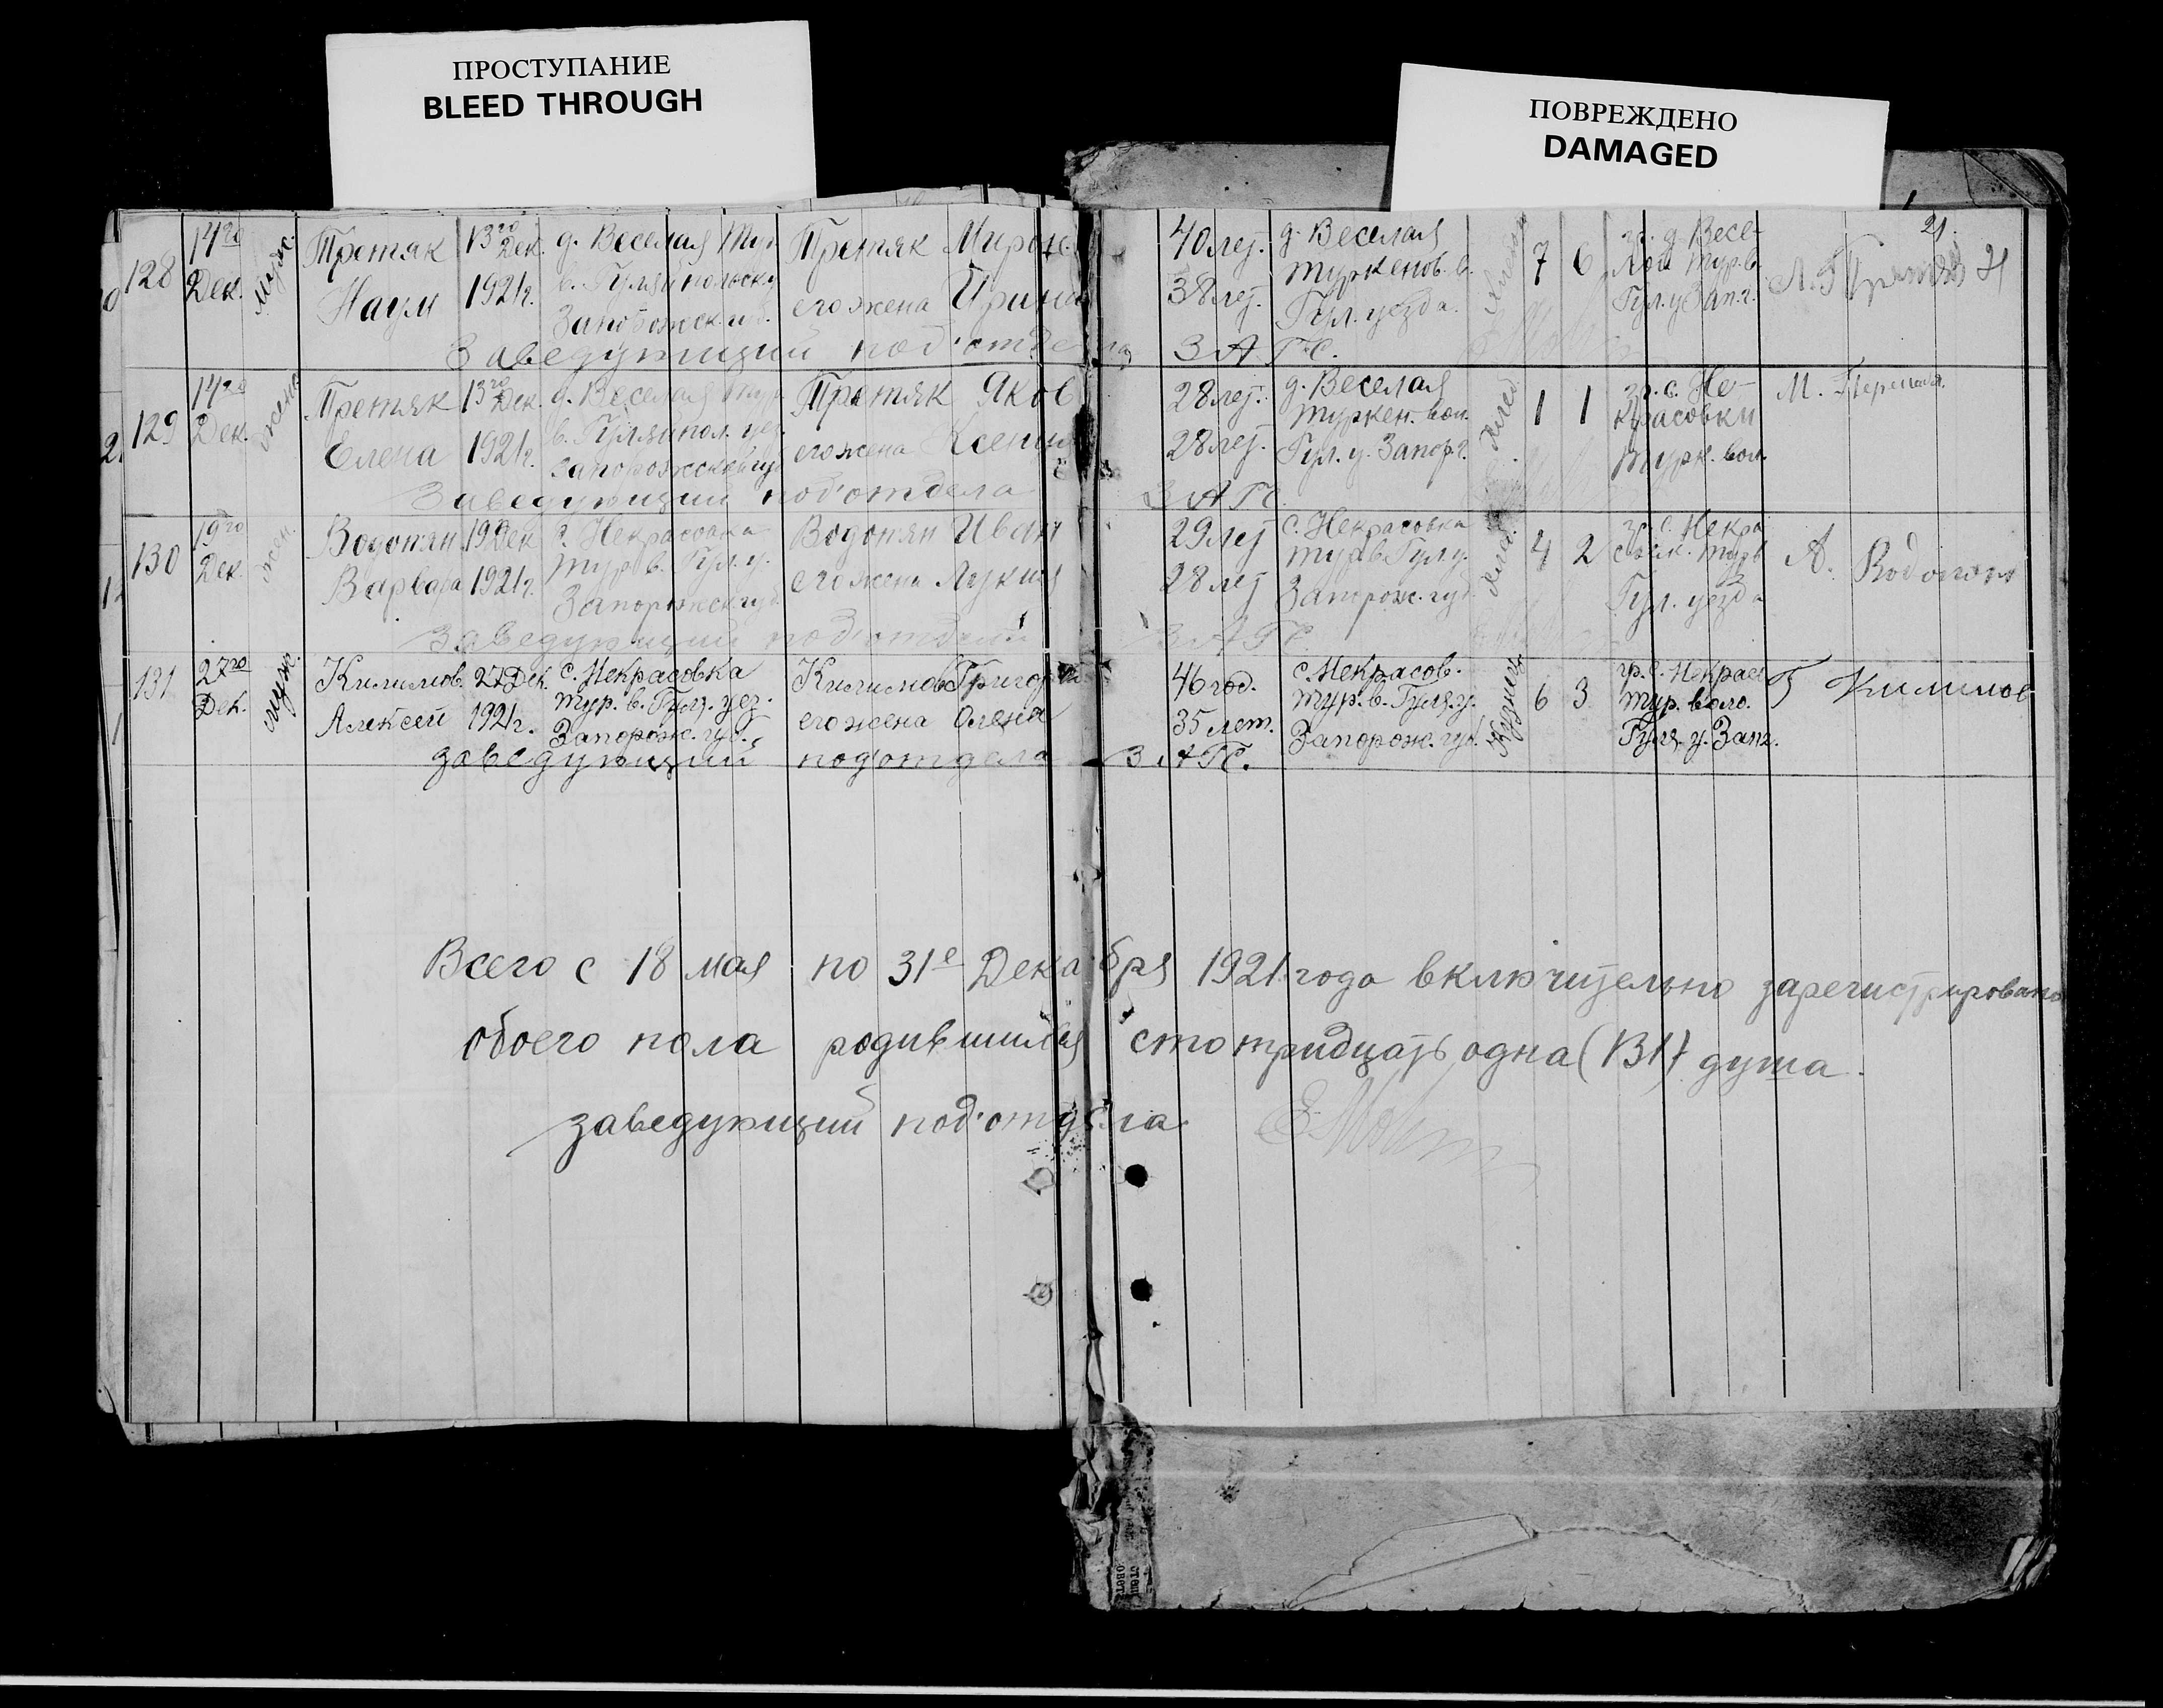 ПРОСТУПАНИЕ
BLEED THROUGH
ПОВРЕЖДЕНО
DAMAGED
128 14го Дек. муж. Третяк Наум 13го Дек. 1921г. д. Веселая Тур. в. Гуляйпольск. у. Запорожск. губ. Третяк Мирон его жена Ирина 40 лет. 38 лет. д. Веселая Туркенов. в. Гул. уезда. 7 6 гр. д. Весе-лой Тур. в. Гул. у Зап. г. 21
Заведующий под'отдела ЗАГС.
129 14го Дек. женс. Третяк Елена 13го Дек. 1921г. д. Веселая Тур. в. Гуляйпол. уез. Запорожской губ. Третяк Яков его жена Ксения 28 лет. 28 лет. д. Веселая Туркен. вол. Гул. у. Запор. г. 1 1 гр. с. Не-красовки Турк. вол. М.
Заведующий под'отдела ЗАГС
130 19го Дек. жен. Водопян Варвара 19 Дек 1921г. с. Некрасовка Тур. в. Гул. у. Запорожск. губ. Водопян Иван его жена Лукия 29 лет 28 лет с. Некрасовка Тур. в. Гул. у. Запорож. губ. 4 2 гр. с. Некра Тур в Гул. уезда А.
Заведующий под'отдела ЗАГС
131 27го Дек. муж. Килимов Алексей 27 Дек. 1921г. с. Некрасовка Тур. в. Гуля. уез. Запорож. губ. Килимов Григорий его жена Олена 46 год. 35 лет. с. Некрасов. Тур. в. Гуля. у. Запорож. губ. Кузнец 6 3 гр. с. Некрас Тур. воло. Гуля. у. Зап. г. Г Килимов
заведующий под'отдела ЗАГС.
Всего с 18 мая по 31е Декабря 1921 года включительно зарегистрировано
обоего пола родившихся сто тридцать одна (131) душа.
заведующий под'отдела